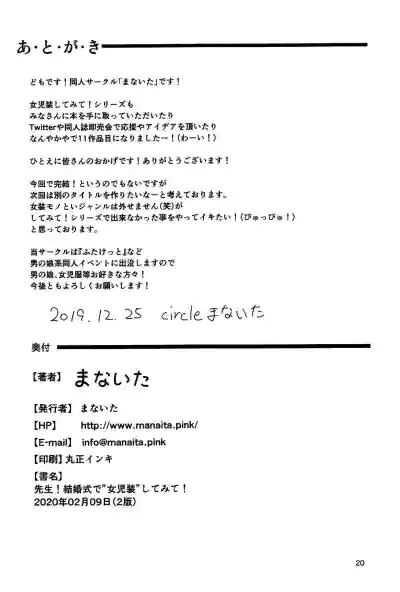 あ・と・が・き
どもです！同人サークル「まないた」です！
女児装してみて！シリーズも
みなさんに本を手に取っていただいたり
Twitterや同人誌即売会で応援やアイデアを頂いたり
なんやかやで11作品目になりましたー！(わーい！)
ひとえに皆さんのおかげです！ありがとうございます！
今回で完結！というのでもないですが
次回は別のタイトルを作りたいなーと考えております。
女装モノといジャンルは外せません(笑)が
してみて！シリーズで出来なかった事をやってイキたい！(ぴゅっぴゅ！)
と思っております。
当サークルは『ふたけっと』など
男の娘系同人イベントに出没しますので
男の娘、女児服等お好きな方々！
今後ともよろしくお願いします！
2019.12.25 circleまないた
奥付
【著者】 まないた
【発行者】 まないた
【HP】 http://www.manaita.pink/
【E-mail】 info@manaita.pink
【印刷】丸正インキ
【書名】
先生！結婚式で"女児装"してみて！
2020年02月09日(2版)
20